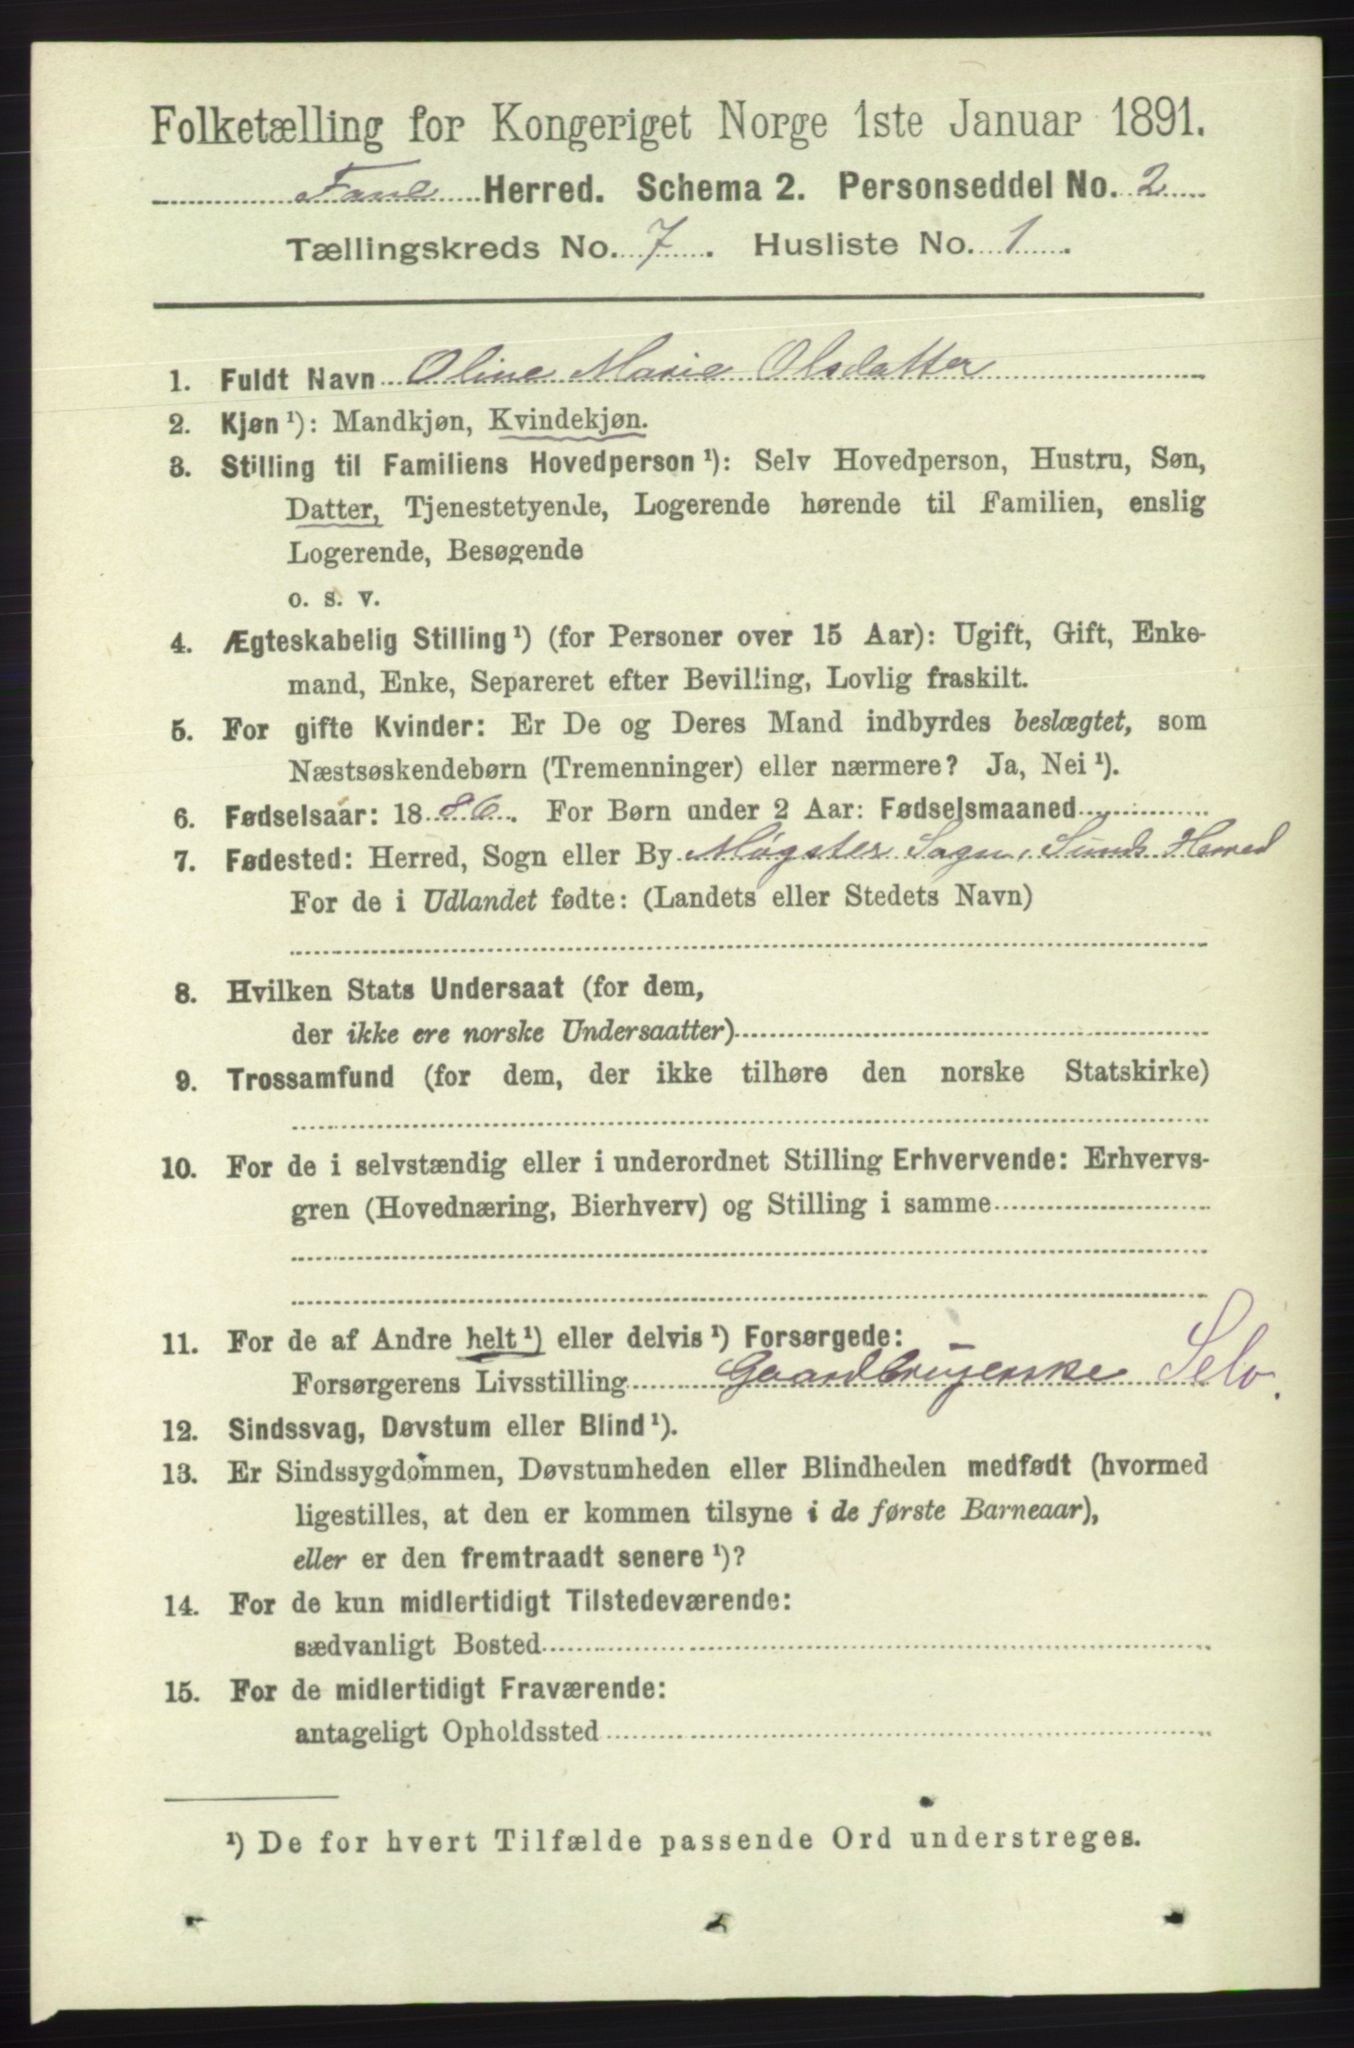 Folketælling for Kongeriget Norge 1ste Januar 1891.
Fane Herred. Schema 2. Personseddel No. 2
Tællingskreds No. 7. Husliste No. 1.
1. Fuldt Navn Oline Marie Olsdatter
2. Kjøn ¹): Mandkjøn, Kvindekjøn.
3. Stilling til Familiens Hovedperson ¹): Selv Hovedperson, Hustru, Søn,
Datter, Tjenestetyende, Logerende hørende til Familien, enslig
Logerende, Besøgende
o. s. v.
4. Ægteskabelig Stilling ¹) (for Personer over 15 Aar): Ugift, Gift, Enke-
mand, Enke, Separeret efter Bevilling, Lovlig fraskilt.
5. For gifte Kvinder: Er De og Deres Mand indbyrdes beslægtet, som
Næstsøskendebørn (Tremenninger) eller nærmere? Ja, Nei ¹).
6. Fødselsaar: 1886. For Børn under 2 Aar: Fødselsmaaned
7. Fødested: Herred, Sogn eller By Møgster Sogn, Sunds Herred
For de i Udlandet fødte: (Landets eller Stedets Navn)
8. Hvilken Stats Undersaat (for dem,
der ikke ere norske Undersaatter)
9. Trossamfund (for dem, der ikke tilhøre den norske Statskirke)
10. For de i selvstændig eller i underordnet Stilling Erhvervende: Erhvervs-
gren (Hovednæring, Bierhverv) og Stilling i samme
11. For de af Andre helt ¹) eller delvis ¹) Forsørgede:
Forsørgerens Livsstilling Gaardbrugerske Selv.
12. Sindssvag, Døvstum eller Blind ¹).
13. Er Sindssygdommen, Døvstumheden eller Blindheden medfødt (hvormed
ligestilles, at den er kommen tilsyne i de første Barneaar),
eller er den fremtraadt senere ¹)?
14. For de kun midlertidigt Tilstedeværende:
sædvanligt Bosted
15. For de midlertidigt Fraværende:
antageligt Opholdssted
¹) De for hvert Tilfælde passende Ord understreges.